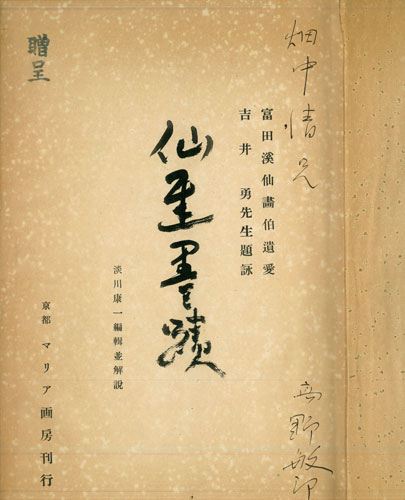 畑中 兄
高野敏
富田溪仙畫伯遺愛
吉井勇先生題詠
仙厓墨蹟
淡川康一編輯並解說
京都 マリア画房刊行
贈呈